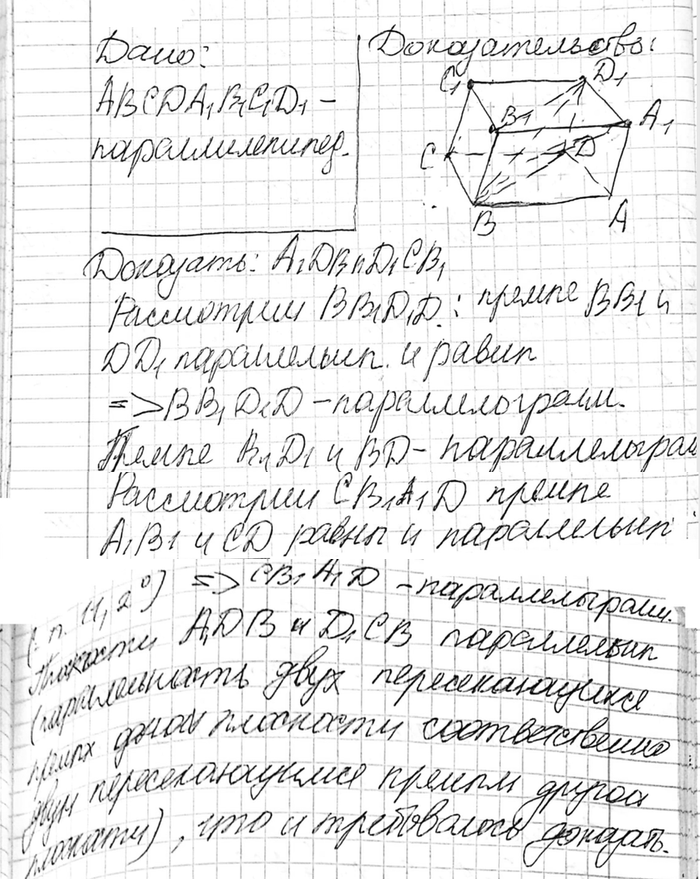 Дано:
ABCDA₁B₁C₁D₁ –
параллилепипед.
Доказательство:
C₁ D₁
B₁ A₁
C D
B A
Доказать: A₁DB и D₁CB₁
Рассмотрим BB₁D₁D: премпе BB₁ и
DD₁ параллельн. и равны
=> BB₁D₁D – параллелограмм.
B₁D₁ и BD – параллелограм
Рассмотрим CB₁A₁D премпе
A₁B₁ и CD равны и параллельны
(: п. 11, 2⁰) => CB₁A₁D – параллелограмм.
Плоскости A₁DB и D₁CB параллельны
(параллельность двух пересекающихся
прямых одной плоскости соответственно
двум пересекающимся прямым другой
плоскости), что и требовалось доказать.